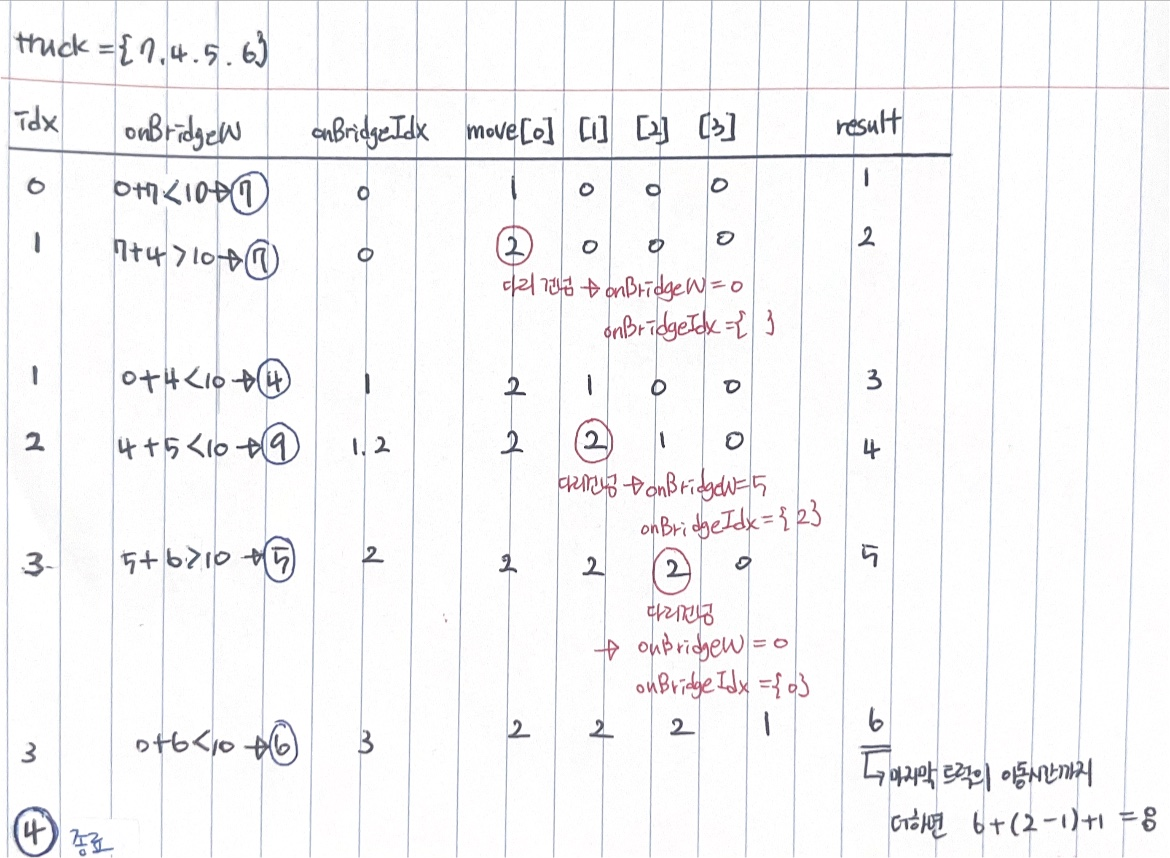 truck = {7.4.5.6}
idx onBridgeW onBridgeIdx move[0] [1] [2] [3] result
0 0+7<10→7 0 1 0 0 0 1
1 7+4>10→7 0 2 0 0 0 2
다리 건넘 → onBridgeW=0
onBridgeIdx={ }
1 0+4<10→4 1 2 1 0 0 3
2 4+5<10→9 1.2 2 2 1 0 4
다리건넘→onBridgeW=5
onBridgeIdx={2}
3 5+6>10→5 2 2 2 2 0 5
다리건넘
→ onBridgeW=0
onBridgeIdx={0}
3 0+6<10→6 3 2 2 2 1 6
↳마지막 트럭의 이동시간까지
더하면 6+(2-1)+1=8
4 종료